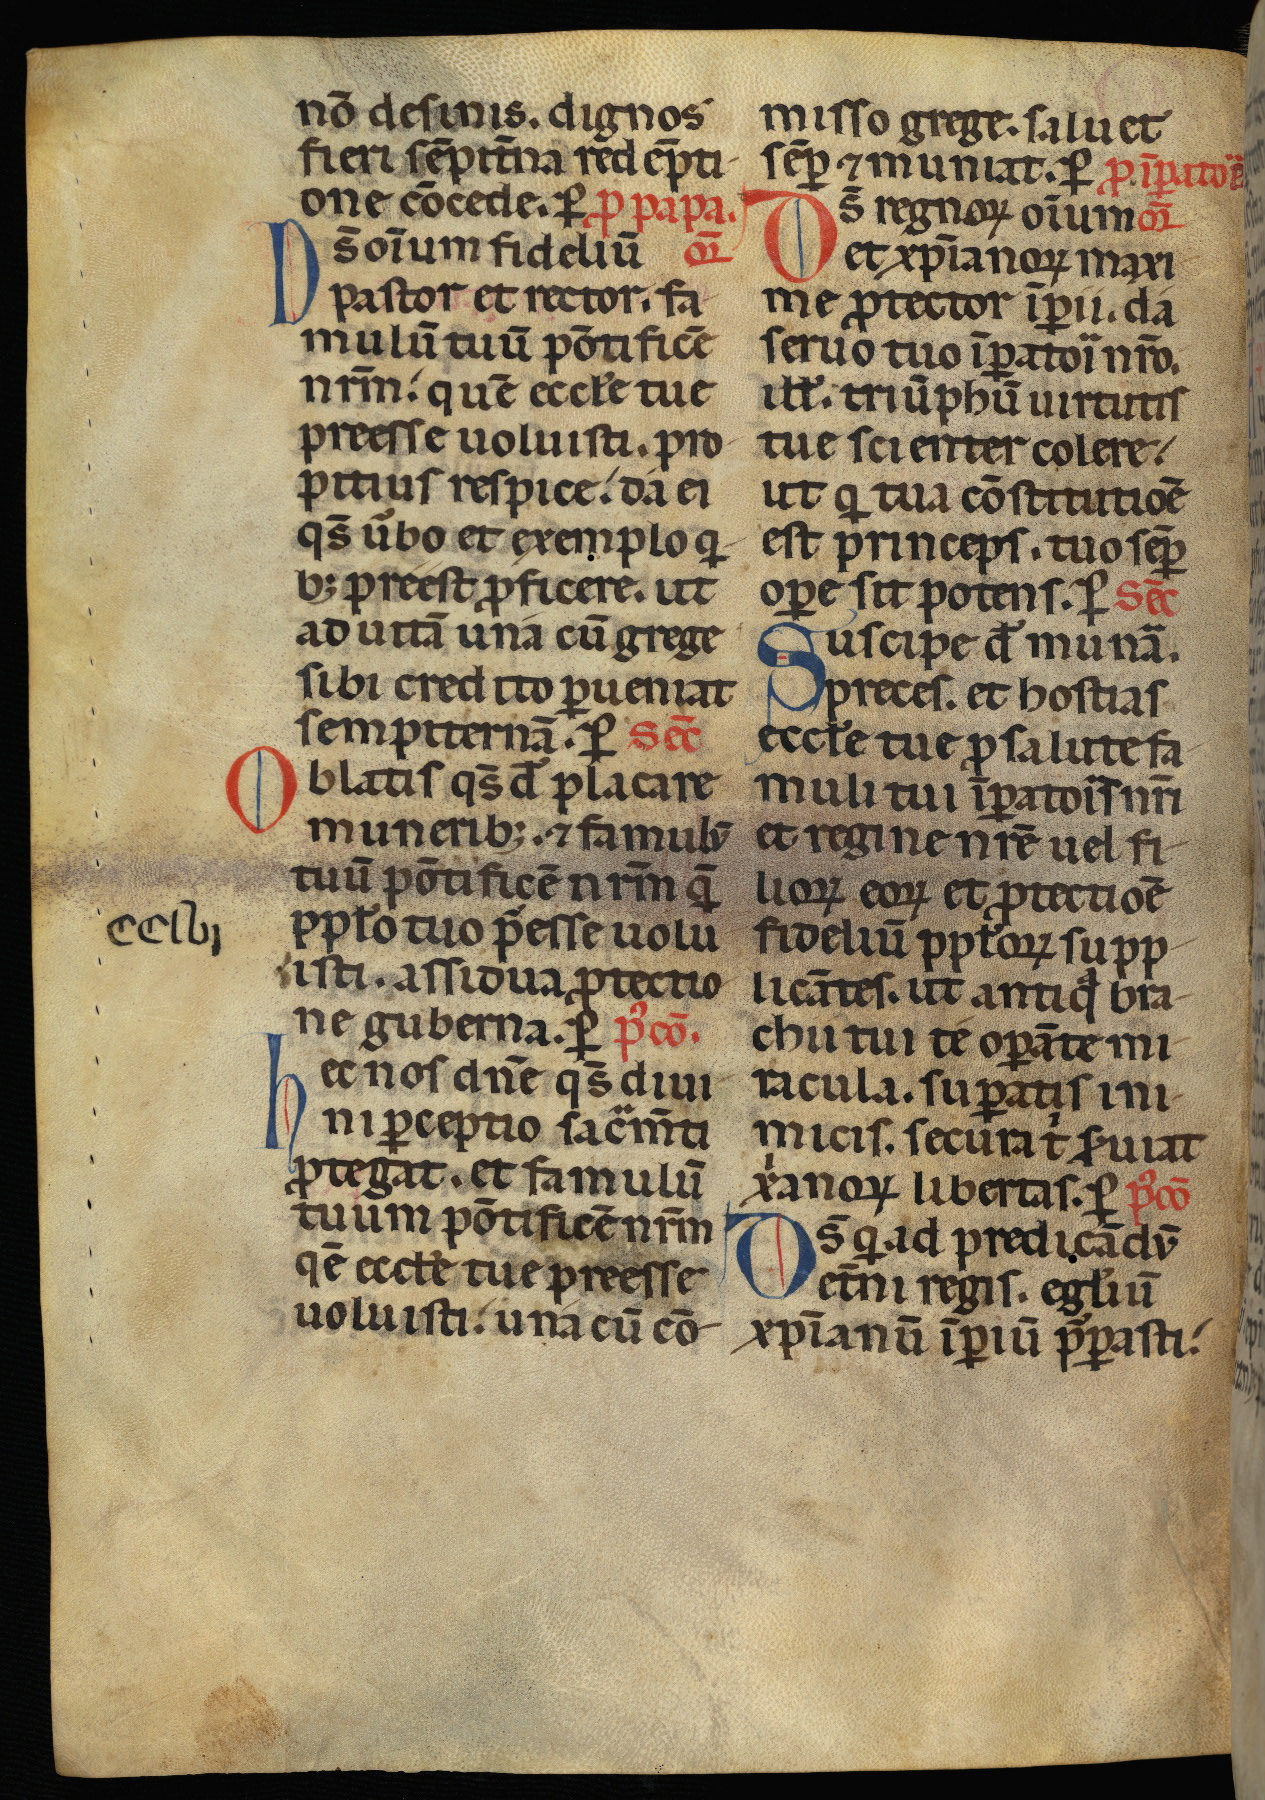 nō desinis. dignos
fieri sēpit̄na red ēpti
one cōcede. ꝑ ꝓ papa.
Ds̄ oīum fideliū or̄
pastor et rector. fa
mulū tuū pōtificē
nr̄m. quē eccłe tue
preesse uoluisti. pro
pitius respice. da ei
qs̄ ūbo et exemplo q
bꝫ preest ꝓficere. ut
ad uitā una cū grege
sibi credito ꝑueniat
sempiternā. ꝑ Sec̄
Oblatis qs̄ d̄ placare
muneribꝫ. ⁊ famulū
tuū pōtificē nr̄m q̄
ppło tuo p̄esse uolu
isti. assidua ꝓtectio
ne guberna. ꝑ p̄ cō.
hec nos dn̄e qs̄ diui
ni ꝑceptio sac̄m̄ti
ꝓtegat. et famulū
tuum pōtificē nr̄m
qē eccłe tue preesse
uoluisti. una cū cō
cclvi
misso grege. saluet
sēꝑ ⁊ muniat. ꝑ ꝓ īꝑatoē
Ds̄ regnoꝝ oīum or̄
et xp̄ianoꝝ maxi
me ꝓtector īꝑii. da
seruo tuo īꝑatoī nr̄o.
ill̄. triūphū uirtutis
tue scienter colere.
ut q tua cōstitutiōē
est princeps. tuo sēꝑ
oꝑe sit potens. ꝑ Sec̄
Suscipe d̄ munā.
preces. et hostias
eccłe tue ꝓ salute fa
muli tui īꝑatoīs nr̄i
et regine nr̄e uel fi
lioꝝ eoꝝ et ꝓtectioē
fideliū ppłoꝝ supp
licātes. ut antiq̄ bra
chii tui te oꝑāte mi
racula. suꝑatis ini
micis. secura t̄ s̄uiat
xanoꝝ libertas. ꝑ p̄ cō
Ds̄ q ad predicādū
et̄ni regis. eḡliū
xp̄ianū īꝑiū p̄ꝑasti.